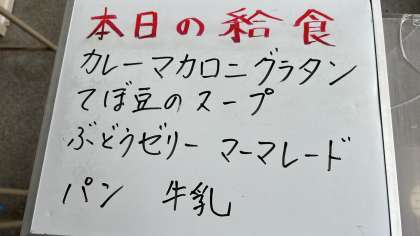 本日の給食
カレーマカロニグラタン
てぼ豆のスープ
ぶどうゼリー マーマレード
パン 牛乳